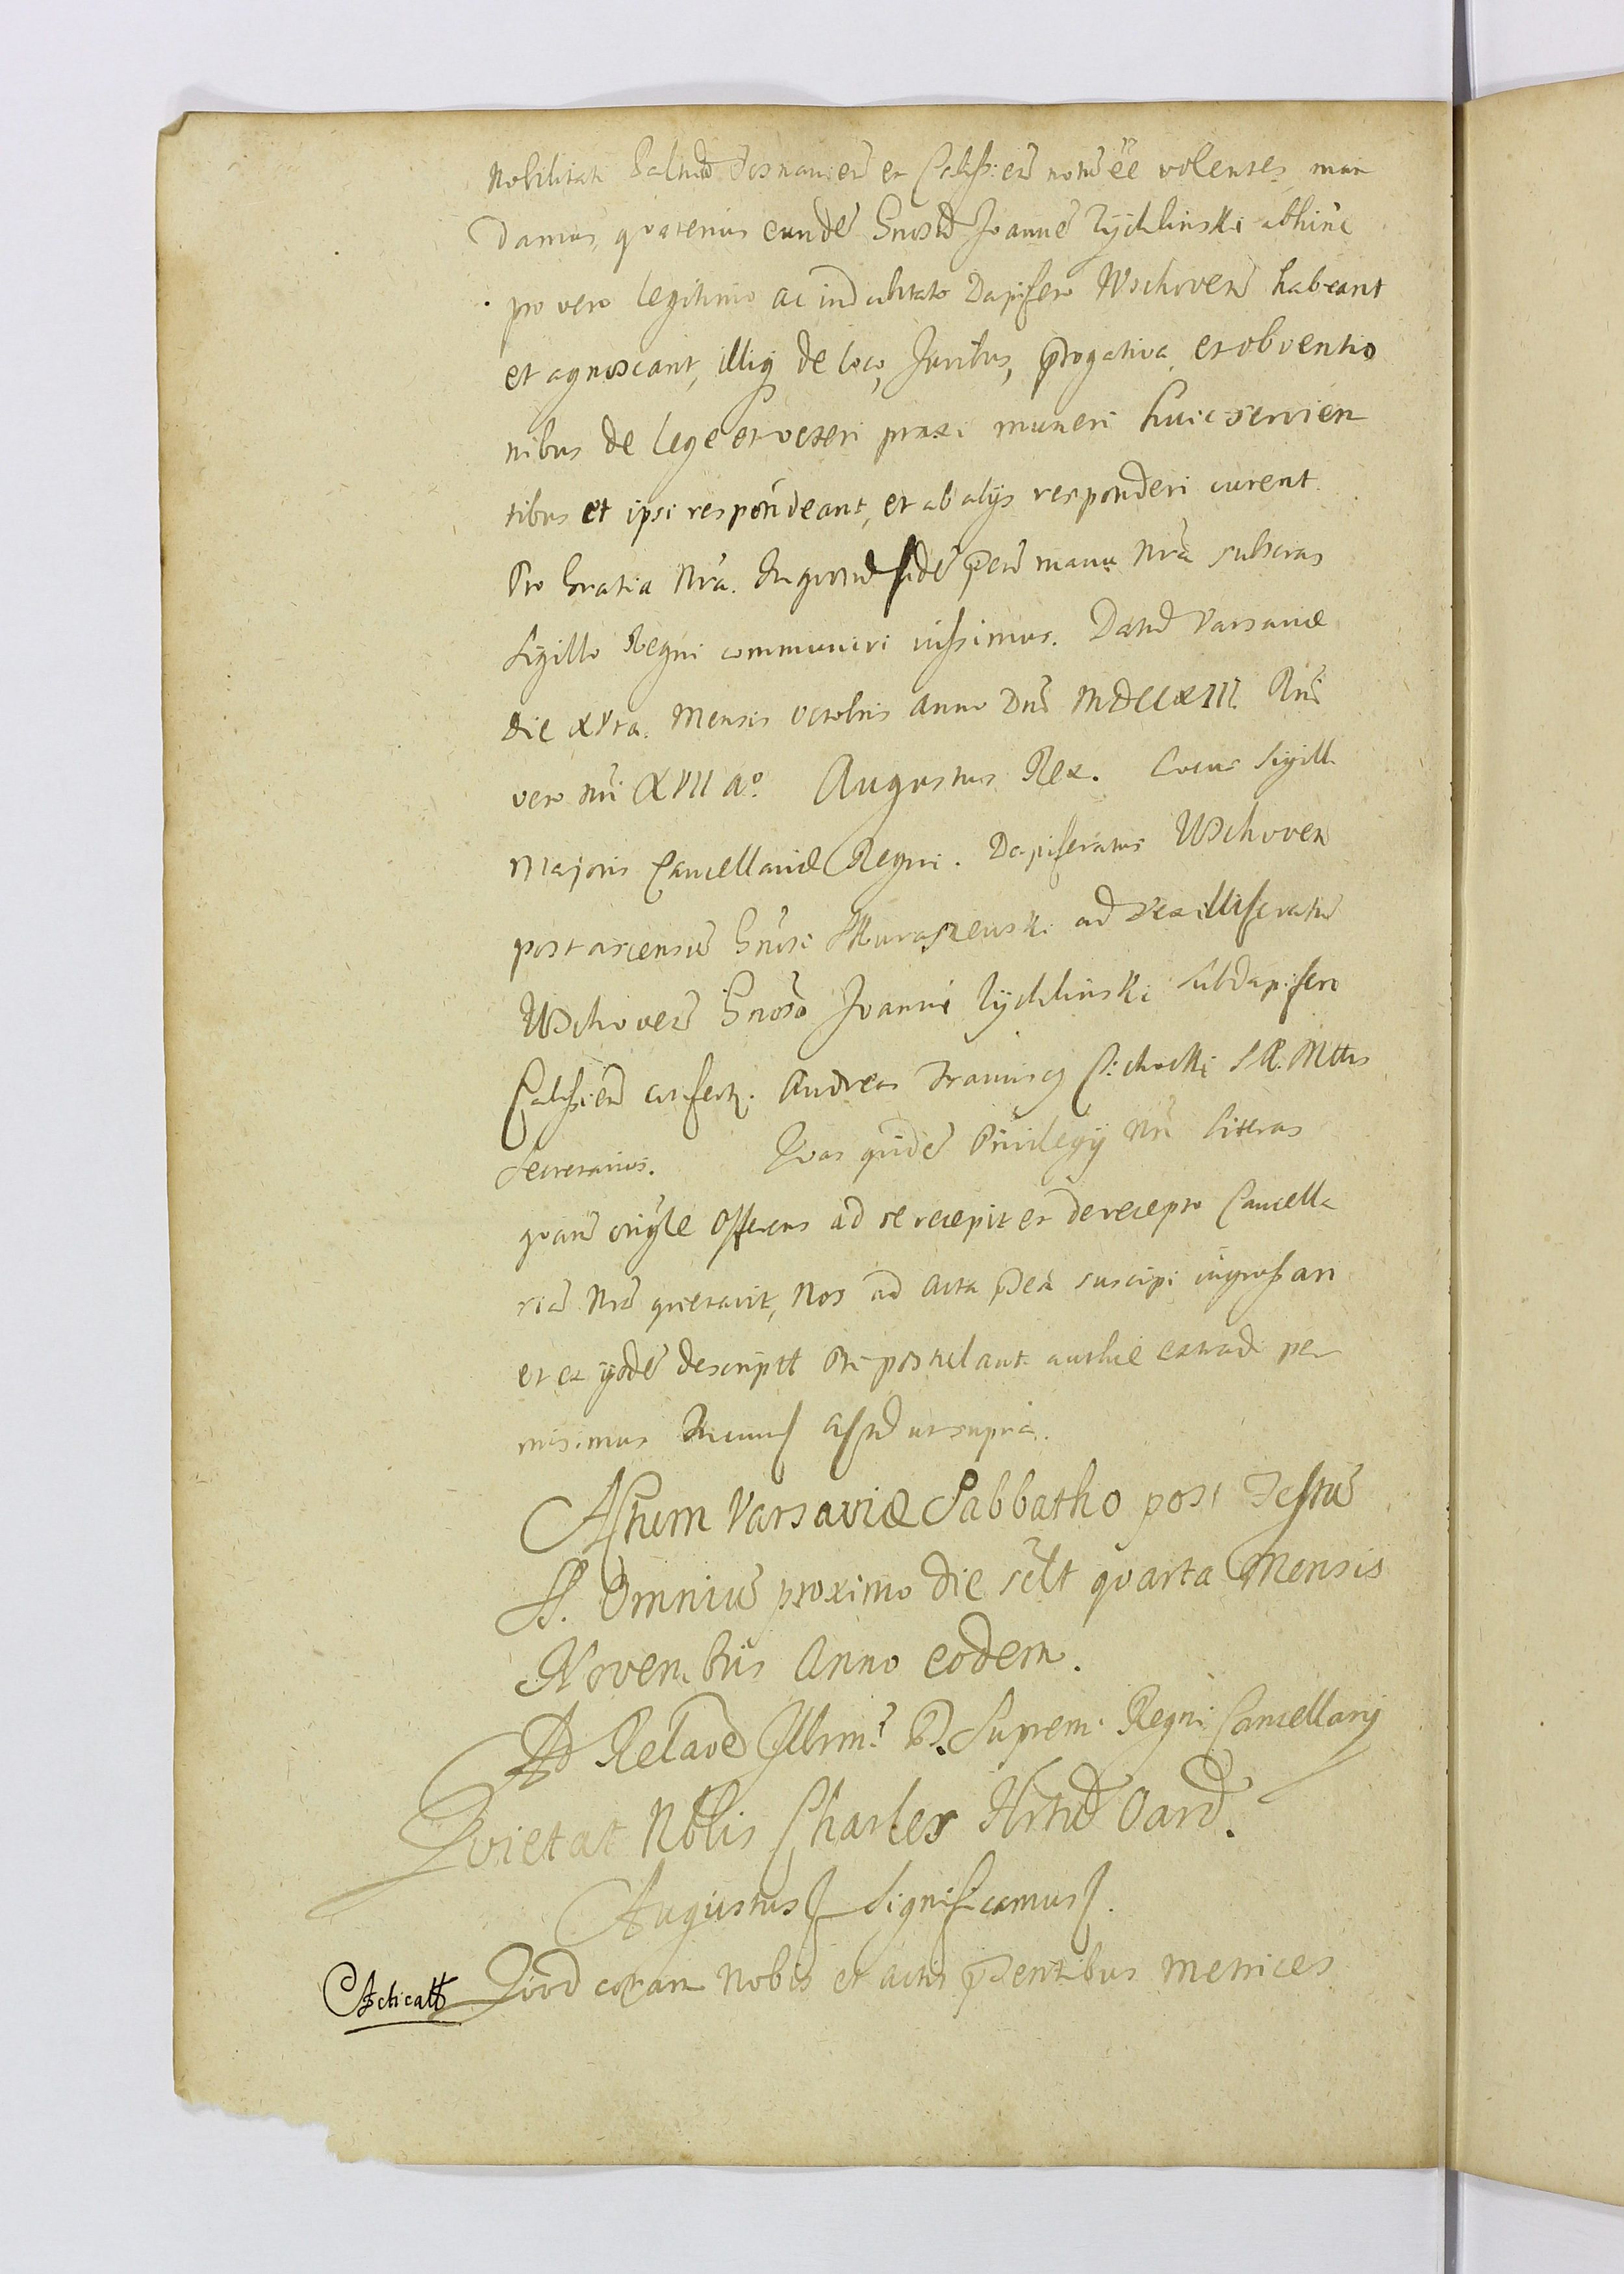 Nobilitati Palnũ Posnanien̄ et Calissien̄ notũ ēē volentes, man
damus, quatenus eundē Gnosũ Joannē Zychlinski abhinc
pro vero legitimo ac indubitato Dapifero Wschoven̄ habeant
et agnoscant, illiq́ de loco, Juribus, p̄rogativa, et obventio
nibus de lege et veteri praxi muneri huic servien
tibus et ipsi respondeant, et ab alijs responderi curent
Pro Gratia Nrā. In quorũ fidē p̄en̄ manu Nrā subscras
Sigillo Regni communiri iussimus. Datũ Varsaviæ
die XVta. Mensis Octobris Anno Dnī MDCCXIII Rnī
vero nrī XVII Aº. Augustus Rex. Locus Sigilli
Majoris Cancellariæ Regni. Dapiferatus Wschoven
post ascensũ Gnosi Skuraszewski ad Vexilliferatũ
Wschoven̄ Gnoso Joanni Zychlinski Subdapifero
Calissien̄ confertr. Andreas Franciscq Cichocki S.R. Mttis
Secretarius. Quas quidē Privilegij Nrī Litteras
quarũ origle Offerens ad se recepit et de recepto Cancella
riā Nrā quietavit, Nos ad Acta p̄ntia suscipi ingrossari
et ex ijsdē descriptt Pti postulanti authce extradi per
misimus In cuius Actũ ut supra.
Actum Varsaviæ Sabbatho post Festũ
SS. Omniũ proximo die sclt quarta Mensis
Novembris Anno eodem.
Ad Relaoē Illrmi D. Supremi Regni Cancellarij
Quietat Nblis Charles Oard.
Augustus Significamus
Acticatt Quod coram Nobis et actis p̄sentibus Metrices